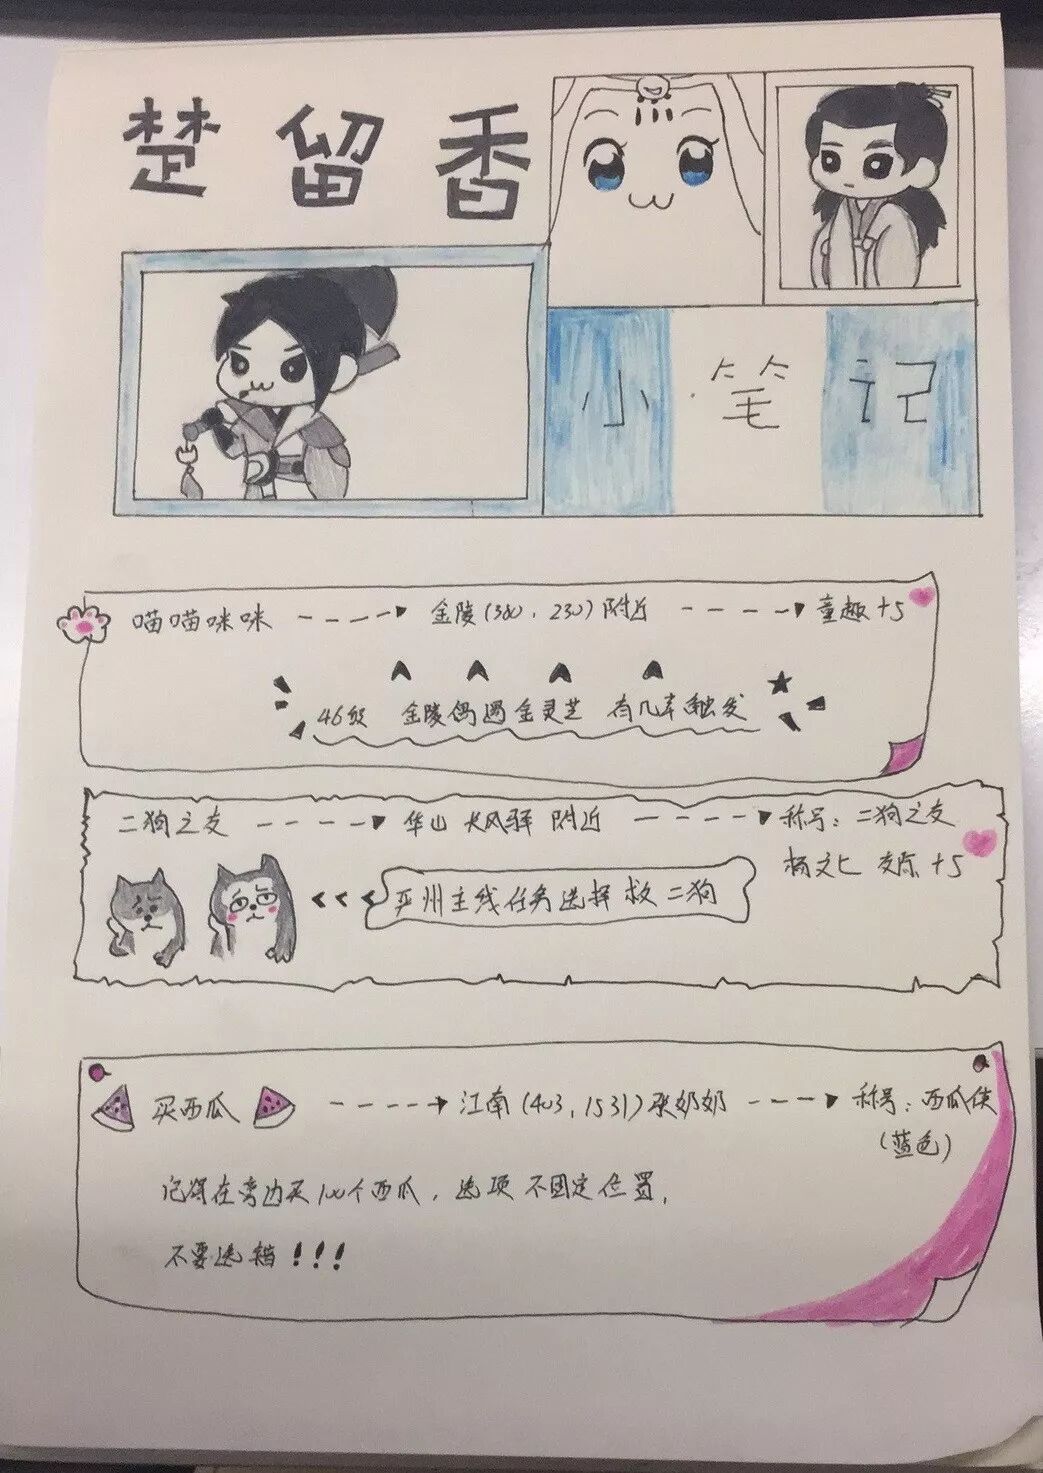 楚留香
小笔记
喵喵咪咪 ----> 金陵(380,230)附近 ----> 童趣+5
46级 金陵偶遇金灵芝 有几率触发
二狗之友 ----> 华山 大风驿 附近 ----> 称号:二狗之友
杨文七 交际+5
<<< 严州主线任务选择救二狗
买西瓜 ----> 江南(403,1531)张奶奶 ----> 称号:西瓜侠
(蓝色)
记得在旁边买100个西瓜,选项不固定位置,
不要选错!!!